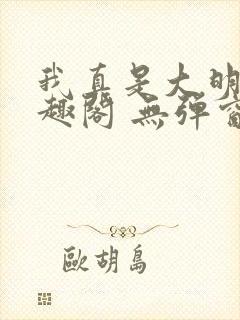 我真是大明
趣閣 無彈窗
歐胡島